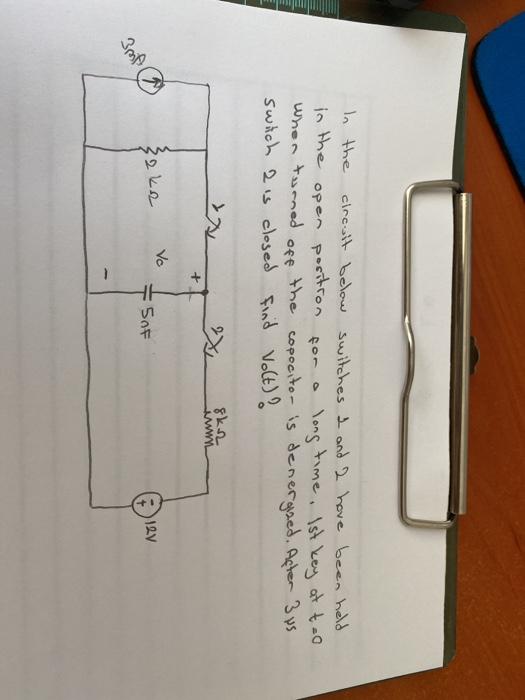 In the circuit below switches 1 and 2 have been held
in the open position for a long time. 1st key at t=0
when turned off the capacitor is denergized. After 3 μs
switch 2 is closed find Vo(t)?
1
2
8kΩ
2 kΩ
Vo
+
-
5nF
-
+
12V